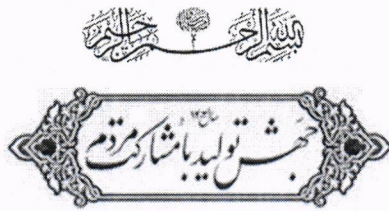 بسم الله الرحمن الرحیم
سال ۱۴۰۳
جهش تولید با مشارکت مردم